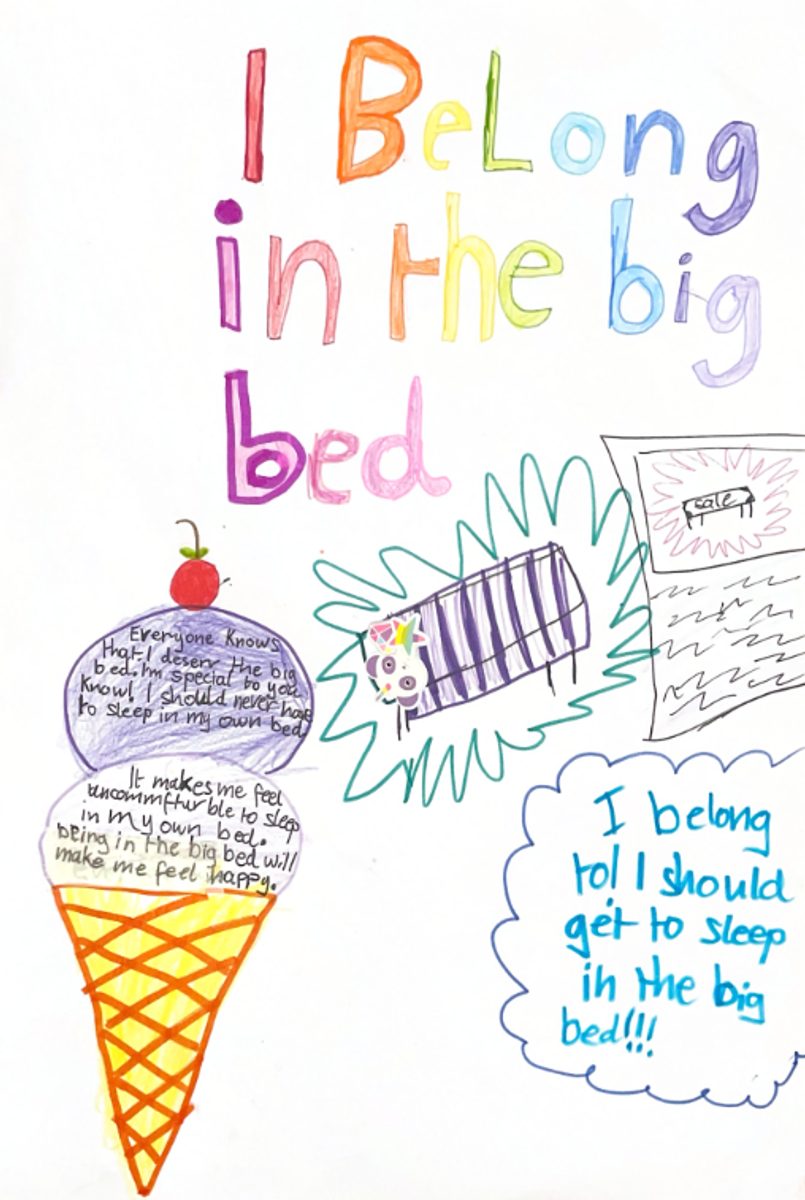 I BeLong
in the big
bed
sale
Everyone Knows
that I deserv the big
bed. I'm special to you
Know! I should never have
to sleep in my own bed.
It makes me feel
uncommfturble to sleep
in my own bed.
being in the big bed will
make me feel happy.
I belong
to! I should
get to sleep
in the big
bed!!!